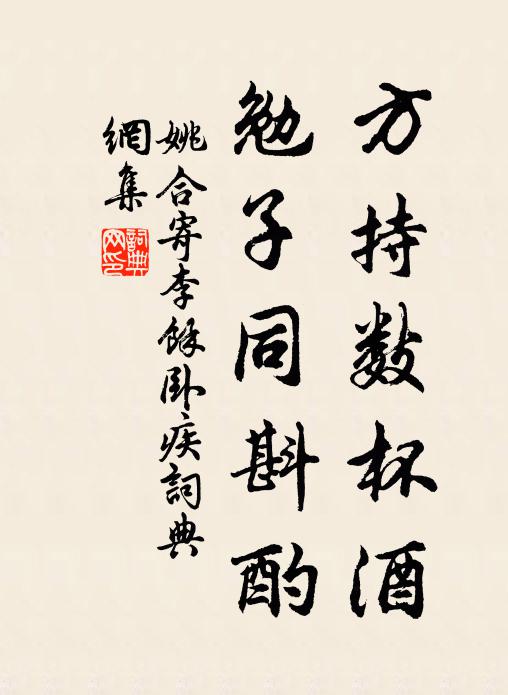 方持数杯酒
勉子同斟酌
姚合寄李餘卧疾詞典
網集
詞典
网印